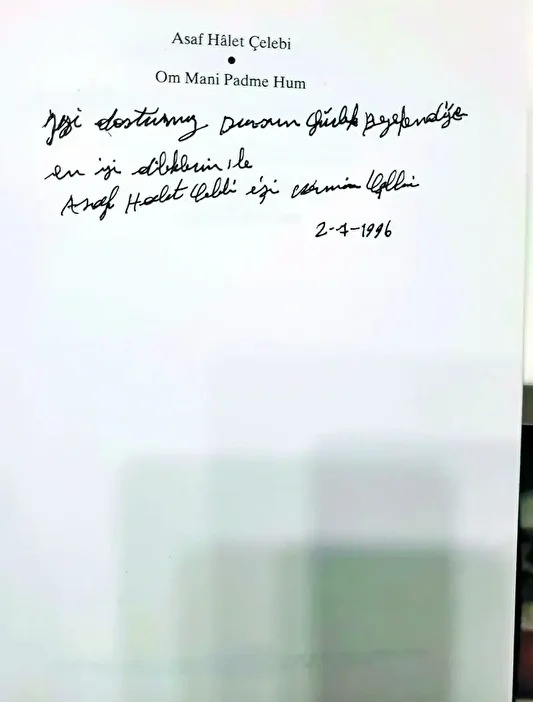 Asaf Hâlet Çelebi
Om Mani Padme Hum
dostumuz Dursun Gürlek Beyefendiye
en iyi dileklerimle
Asaf Halet Çelebi eşi
2-4-1996